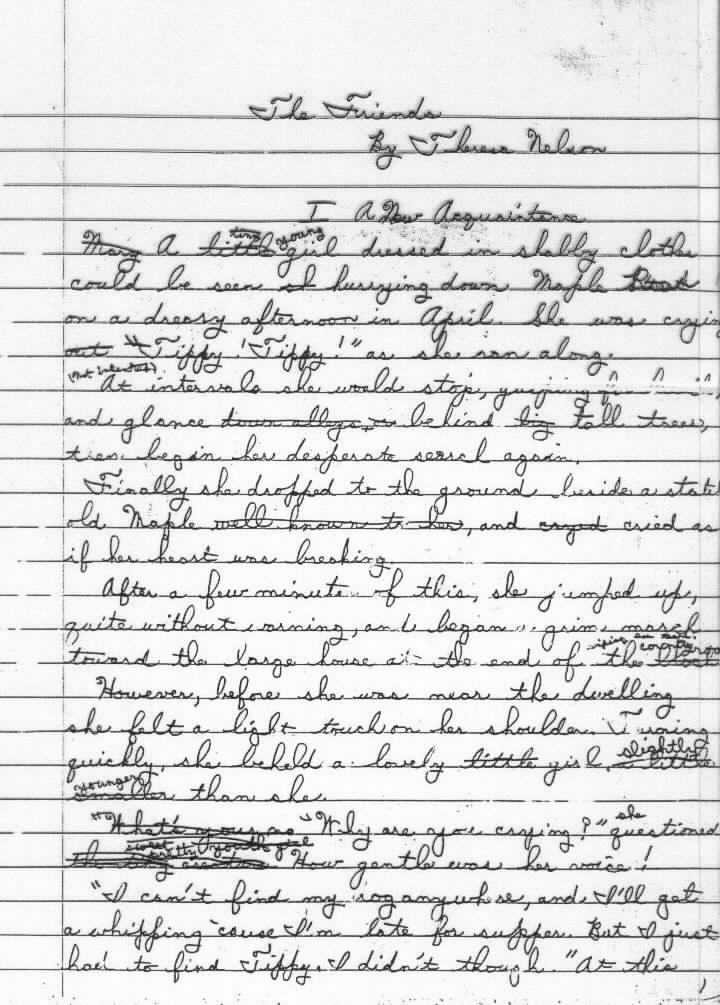 The Friends
By Theresa Nelson
I A New Acquaintence
Mary A little tiny young girl dressed in shabby clothes
could be seen hurrying down Maple
on a dreary afternoon in April. She was crying
out "Tippy! Tippy!" as she ran along.
At intervals she would stop,
and glance down alleys, or behind big tall trees,
then begin her desperate search again.
Finally she dropped to the ground beside a
old Maple well known to her, and cryed cried as
if her heart was breaking.
After a few minutes of this, she jumped up,
quite without warning, and began a grim march
toward the large house at the end of the
However, before she was near the dwelling
she felt a light touch on her shoulder. Turning
quickly, she beheld a lovely little girl, a little slightly
smaller younger than she.
"What's your na "Why are you crying?" she questioned
How gentle was her voice!
"I can't find my dog anywhere, and I'll get
a whipping 'cause I'm late for supper. But I just
had to find Tippy. I didn't though." At this
1